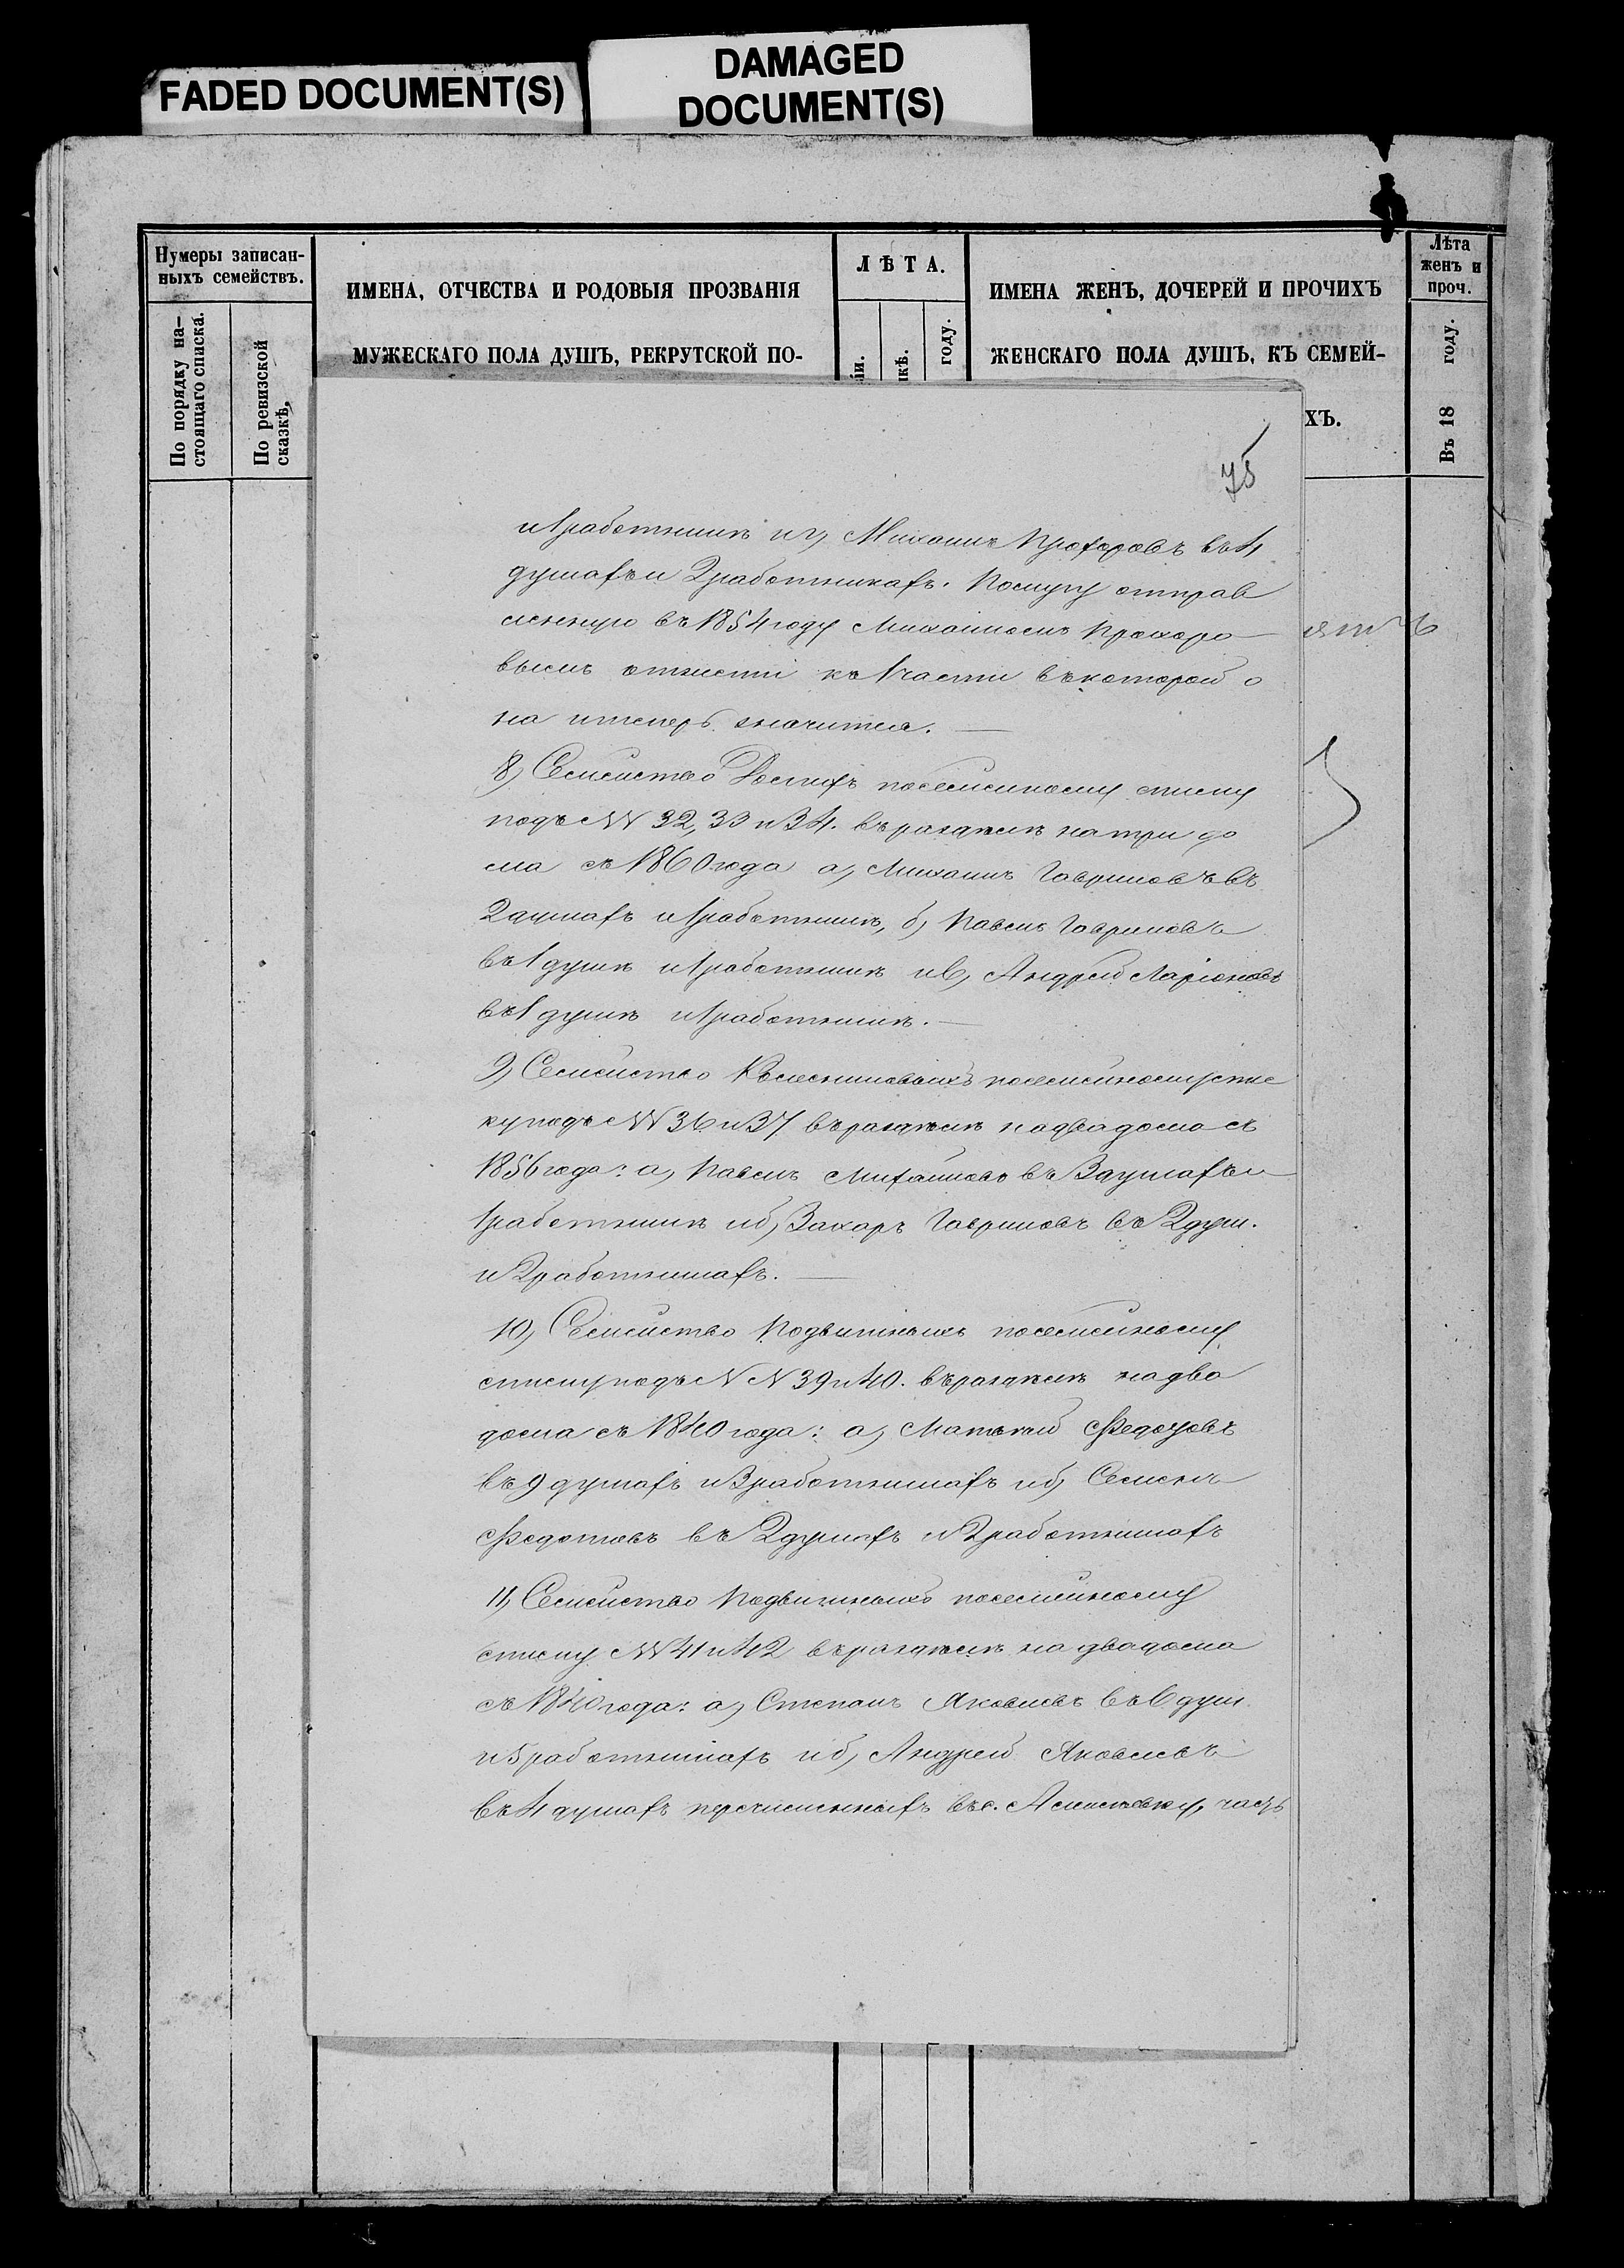 FADED DOCUMENT(S)
DAMAGED
DOCUMENT(S)
Нумеры записан-
ныхъ семействъ.
По порядку на-
стоящаго списка.
По ревизской
сказкѣ.
ИМЕНА, ОТЧЕСТВА И РОДОВЫЯ ПРОЗВАНІЯ
МУЖЕСКАГО ПОЛА ДУШЪ, РЕКРУТСКОЙ ПО-
ЛѢТА.
іи.
кѣ.
году.
ИМЕНА ЖЕНЪ, ДОЧЕРЕЙ И ПРОЧИХЪ
ЖЕНСКАГО ПОЛА ДУШЪ, КЪ СЕМЕЙ-
ХЪ.
Лѣта
женъ и
проч.
Въ 18 году.
75
и 1 работникѣ и г, Михаилъ Прохоровъ въ 4
душахъ и 2 работникахъ. Послугу отправ
ленную въ 1854 году Михаиломъ Прохоро
вымъ отнести къ 1 части въ которой о
на и теперь значится.
8, Семейство посемейному списку
подъ NN 32, 33 и 34. въ раздѣлѣ на три до
ма съ 1860 года а, Михаилъ Гавриловъ въ
2 душахъ и 1 работникѣ, б, Павелъ Гавриловъ
въ 1 душѣ и 1 работникѣ и в, Андрей Ларіоновъ
въ 1 душѣ и 1 работникѣ.
9, Семейство посемейному спис
ку подъ NN 36 и 37 въ раздѣлѣ на два дома съ
1856 года: а, Павелъ Михайловъ въ 3 душахъ и
1 работникѣ и б, Захаръ Гавриловъ въ 2 душ.
и 2 работникахъ.
10, Семейство Подвигиныхъ посемейному
списку подъ NN 39 и 40. въ раздѣлѣ на два
дома съ 1840 года: а, Матвѣй Федотовъ
въ 9 душахъ и 3 работникахъ и б, Семенъ
Федотовъ въ 2 душахъ и 2 работникахъ
11, Семейство Подвигиныхъ посемейному
списку NN 41 и 42 въ раздѣлѣ на два дома
съ 1840 года: а, Степанъ Яковлевъ въ 6 душ.
и 5 работникахъ и б, Андрей Яковлевъ
въ 4 душахъ перечисленныхъ въ с. часть